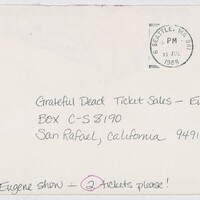 SEATTLE, WA 981
PM
11 JUL
1988
Grateful Dead Ticket Sales – E
Box C-S 8190
San Rafael, California 9491
Eugene show – 2 tickets please!